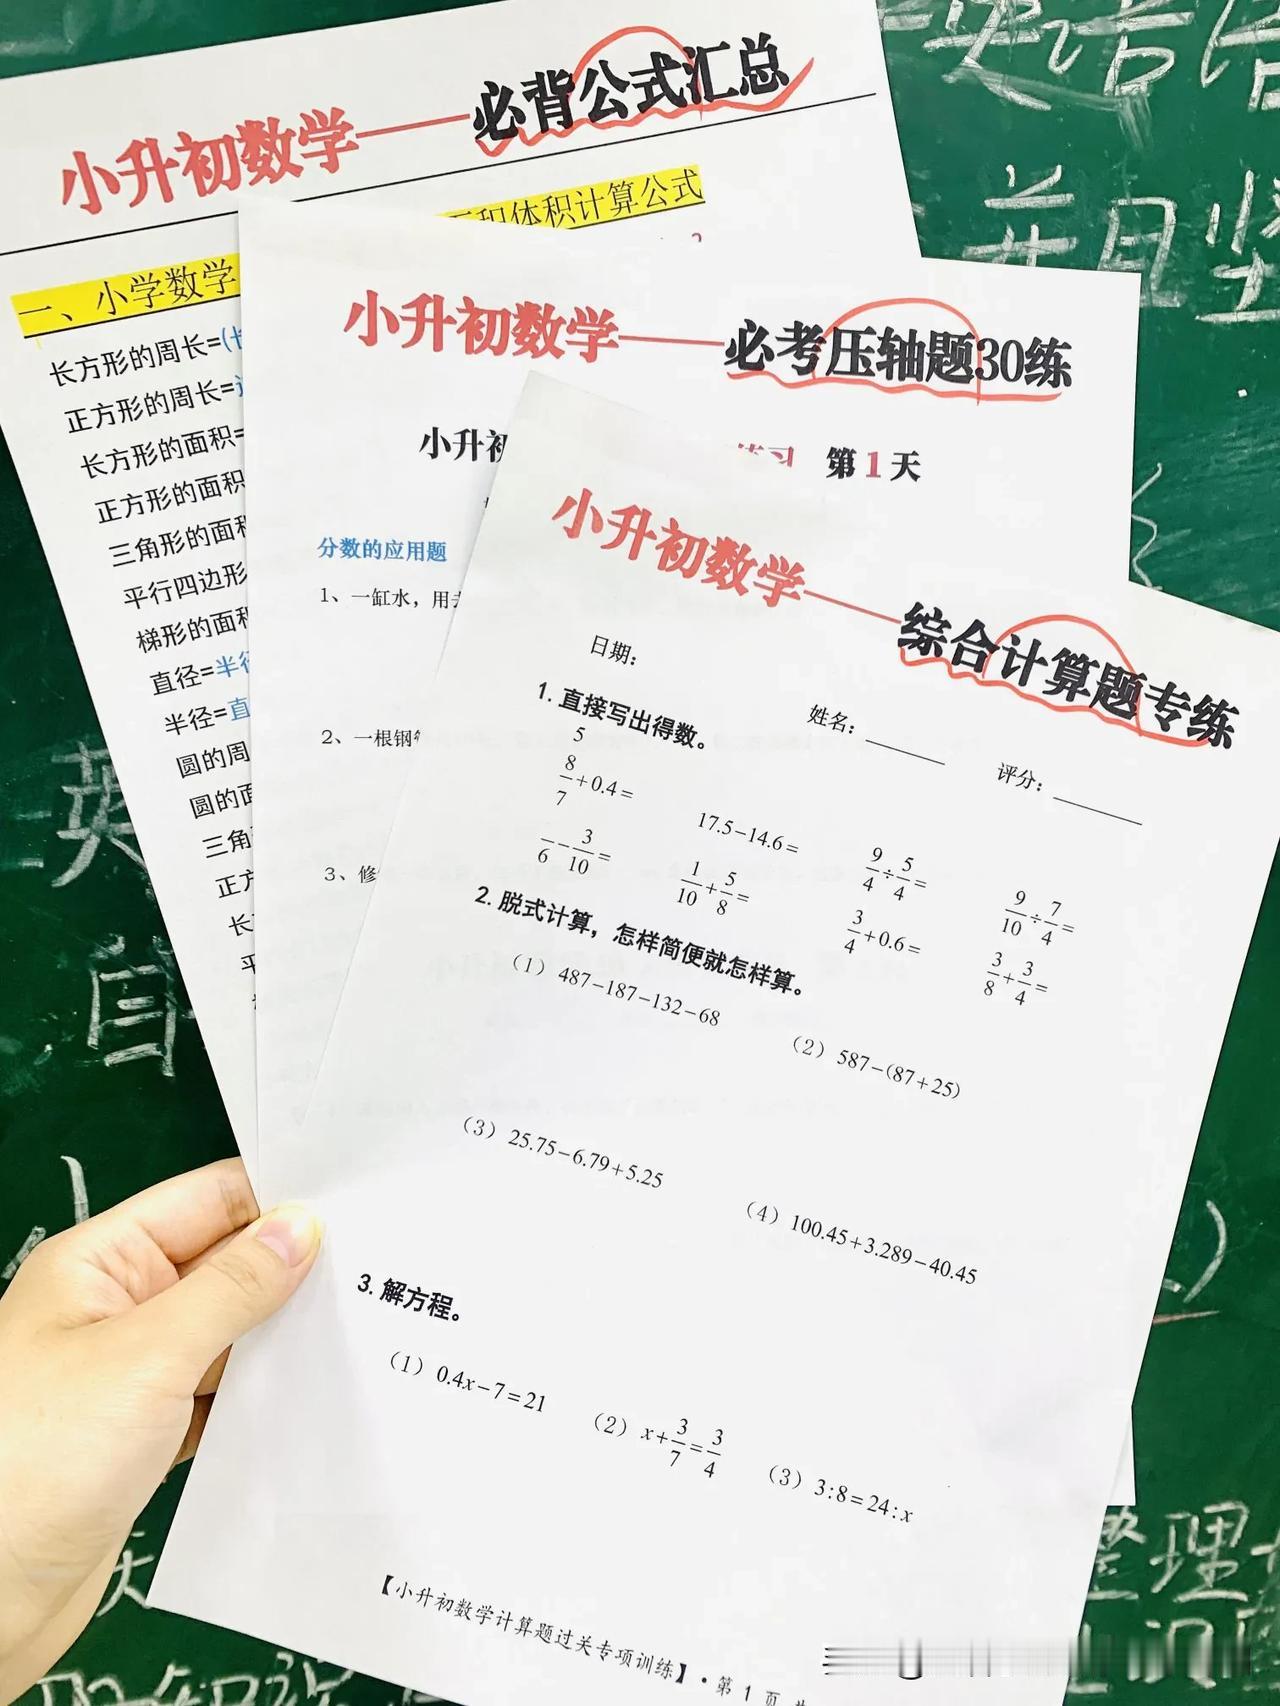 小升初数学——必背公式汇总
面积体积计算公式
一、小学数学
长方形的周长=(长
正方形的周长=
长方形的面积=
正方形的面积
三角形的面积
平行四边形
梯形的面积
直径=半径
半径=直
圆的周
圆的面
三角
正方
长
平
小升初数学——必考压轴题30练
小升初
练习 第1天
分数的应用题
1、一缸水，用去
2、一根钢管
3、修
小升初数学——综合计算题专练
日期：
姓名：______
评分：______
1. 直接写出得数。
5/8+0.4=
17.5-14.6=
9/4÷5/4=
9/10÷7/4=
7/6-3/10=
1/10+5/8=
3/4+0.6=
3/8+3/4=
2. 脱式计算，怎样简便就怎样算。
（1）487-187-132-68
（2）587-(87+25)
（3）25.75-6.79+5.25
（4）100.45+3.289-40.45
3. 解方程。
（1）0.4x-7=21
（2）x+3/7=3/4
（3）3:8=24:x
【小升初数学计算题过关专项训练】·第 1 页
并且坚
英
小
整理